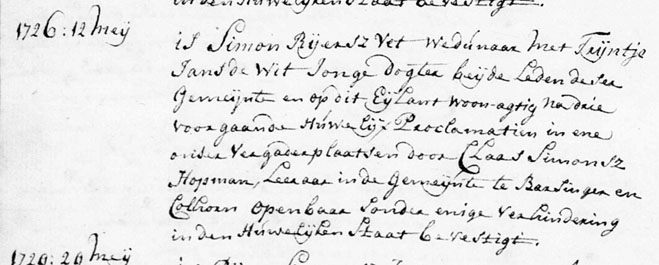 in den Huwelyken Staat bevestigt.
1726: 12 Meij
is Simon Rijersz Vet Wedunaar met Trijntje
Jans de Wit Jonge Dogter beijde Leden deser
Gemeijnte en op dit Eijlant woonagtig na drie
voorgaande Huwelijx Proclamatien in ene
onser Vergaderplaatsen door Claas Simonsz
Hopman, Leeraar in de Gemeijnte te Barsinger en
Colhorn openbaar sonder enige verhindering
in den Huwelijken Staat bevestigt.
1726: 26 Meij